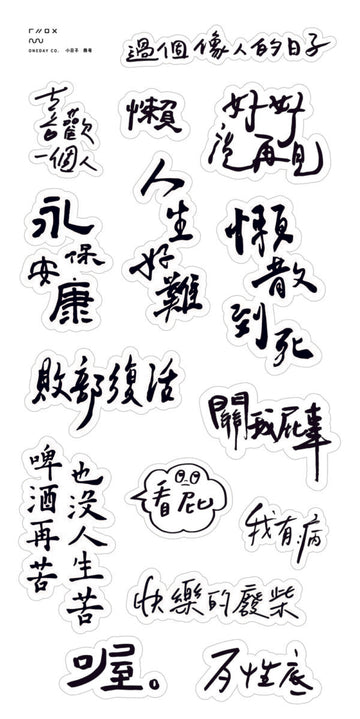 ONEDAY CO. 小日子 商号
過個像人的日子
喜歡
一個人
懶
好好
說再見
永保
安康
人生
好難
懶散
到死
敗部復活
關我屁事
啤酒再苦
也沒人生苦
看屁
我有病
快樂的廢柴
喔。
有性底